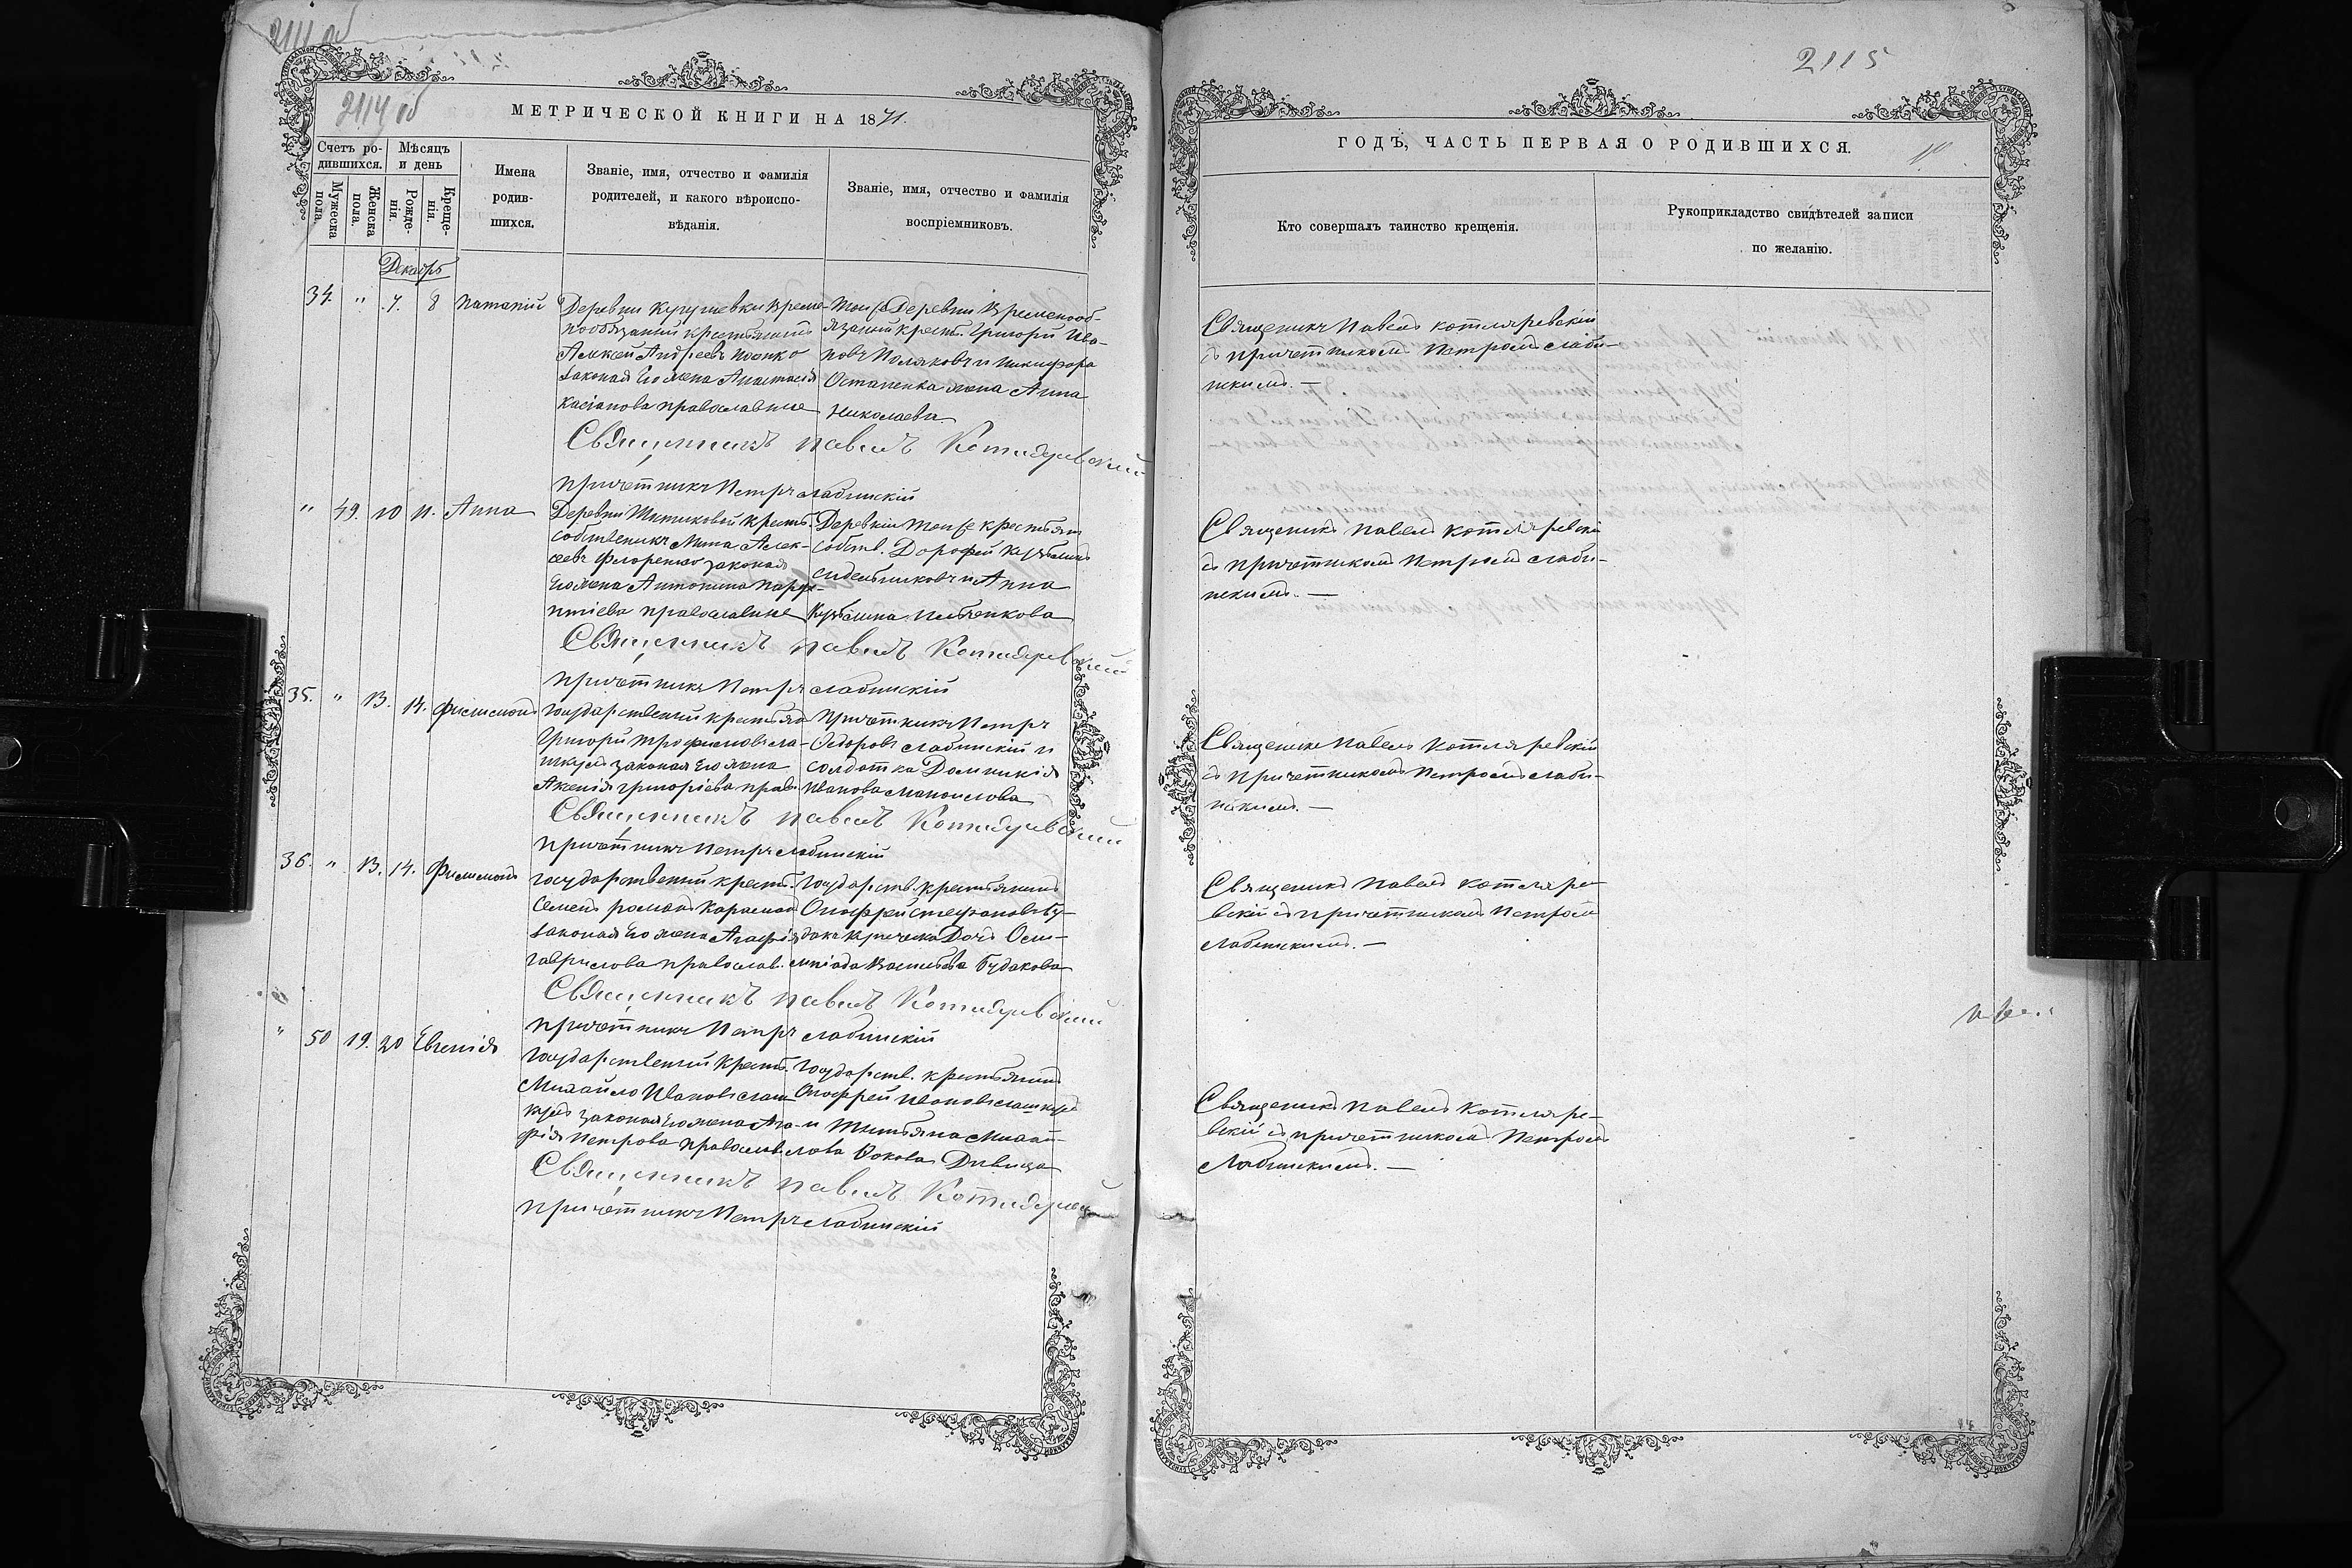 2114 об
МЕТРИЧЕСКОЙ КНИГИ НА 1871.
Счетъ ро-
дившихся.
Мѣсяцъ
и день
Мужеска
пола.
Женска
пола.
Рожде-
нія.
Креще-
нія.
Имена
родив-
шихся.
Званіе, имя, отчество и фамилія
родителей, и какого вѣроиспо-
вѣданія.
Званіе, имя, отчество и фамилія
воспріемниковъ.
Декабрь
34. " 7. 8 Патапій
Деревни Кугушевки време-
Алексей Андреевъ
законая Его жена Анастасія
Касіанова православные
той же Деревни Временооб-
язаный крестья. Григорій Ива-
новъ Поляковъ и Никифора
Остапенка жена Анна
Николаева
Священникъ Павелъ Котляревскій
Причетникъ Петръ Слабинскій
" 49. 10 11. Анна
Деревни крестья.
собственикъ Мина Алек-
сеевъ Флоренко законая
Его жена Антонина Парфе-
нтіева православные
Деревни той же крестьян
собств. Дорофей Кузьминъ
и Анна
Кузьмина
Священникъ Павелъ Котляревскій
Причетникъ Петръ Слабинскій
35. " 13. 14. Филимонъ
Государственый крестьян
Григорій Трофимовъ
законая Его жена
Аксенія Григоріева прав.
Причетникъ Петръ
Федоровъ Слабинскій и
солдатка Домникія
Иванова
Священникъ Павелъ Котляревскій
Причетникъ Петръ Слабинскій
36. " 13. 14. Филимонъ
Государственый крестья.
Семенъ Романъ
законая Его жена Агафія
Гаврилова православ.
Государств. крестьянинъ
Онофрей Стефановъ Бу-
дакъ Дочь Оли-
мпіада Васильева Будакова
Священникъ Павелъ Котляревскій
Причетникъ Петръ Слабинскій
" 50 19. 20 Евгенія
Государственый крестья.
Михайло Ивановъ
законая Его жена Ага-
фія Петрова православ.
Государств. крестьянинъ
Онофрей Ивановъ
и Татьяна Михай-
лова Девица
Священникъ Павелъ Котляревскій
Причетникъ Петръ Слабинскій
2115
ГОДЪ, ЧАСТЬ ПЕРВАЯ О РОДИВШИХСЯ.
Кто совершалъ таинство крещенія.
Рукоприкладство свидѣтелей записи
по желанію.
Священикъ Павелъ Котляревскій
съ причетникомъ Петромъ Слаби-
нскимъ. —
Священикъ Павелъ Котляревскій
съ причетникомъ Петромъ Слаби-
нскимъ. —
Священикъ Павелъ Котляревскій
съ причетникомъ Петромъ Слаби-
нскимъ. —
Священикъ Павелъ Котляре-
вскій съ причетникомъ Петромъ
Слабинскимъ. —
Священикъ Павелъ Котляре-
вскій съ причетникомъ Петромъ
Слабинскимъ. —